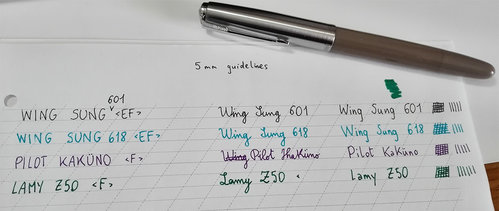 5 mm guidelines
601
WING SUNG <EF> Wing Sung 601 Wing Sung 601
WING SUNG 618 <EF> Wing Sung 618 Wing Sung 618
PILOT KAKÜNO <F> Pilot Kaküno Pilot Kaküno
LAMY Z50 <F> Lamy Z50 Lamy Z50